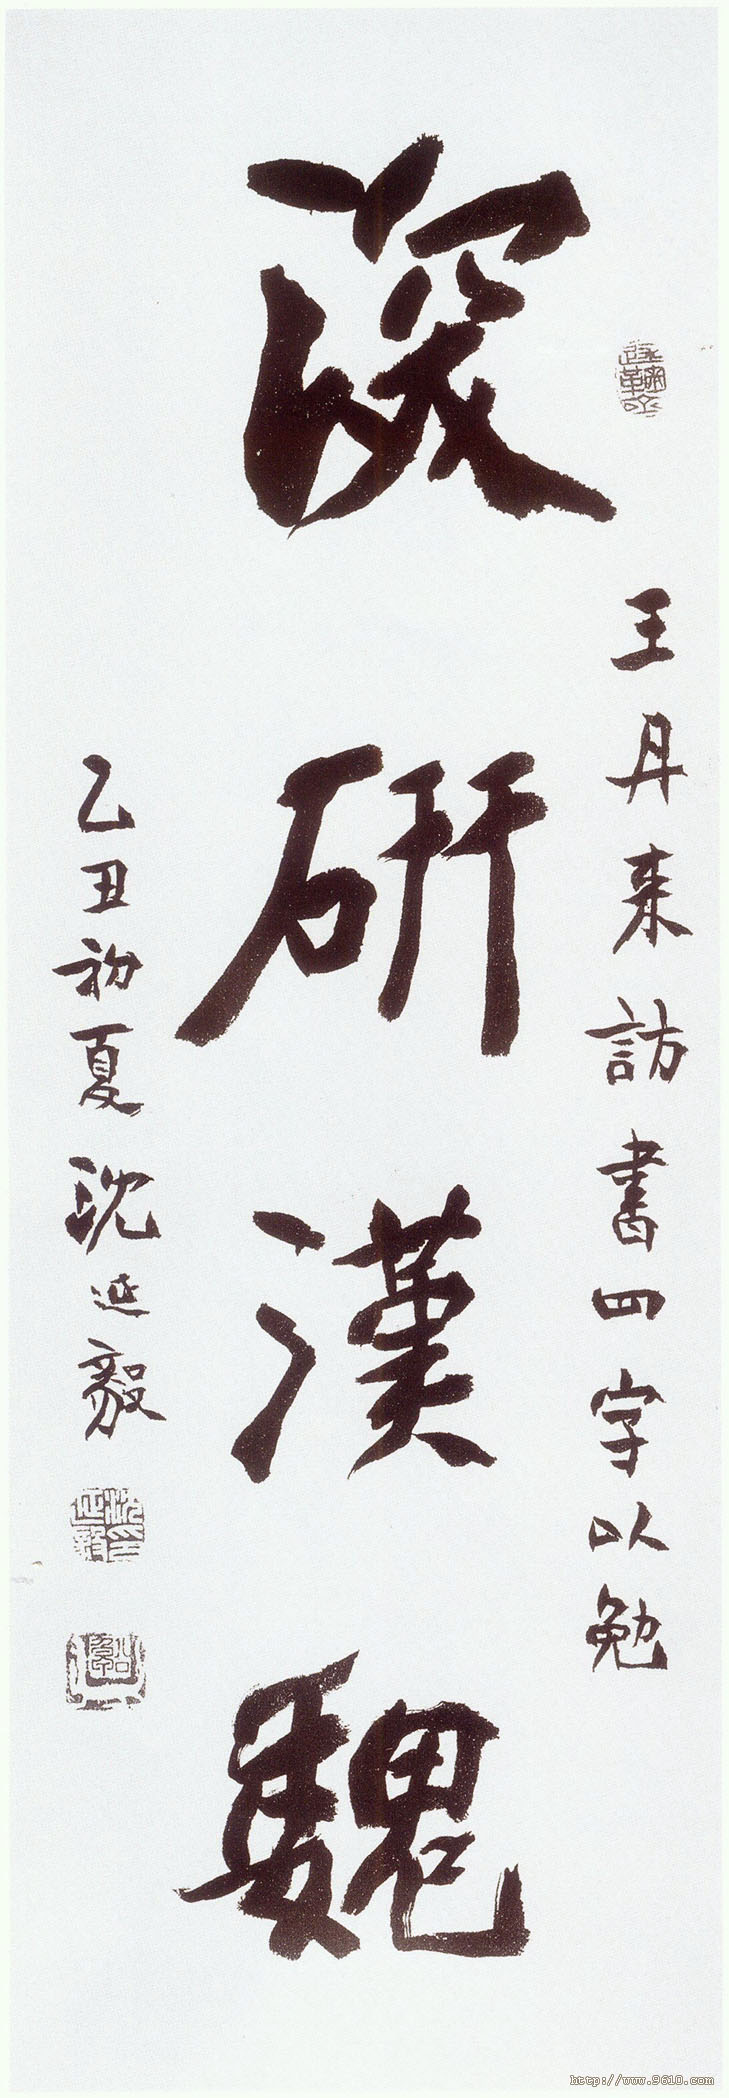 王丹来訪書四字以勉
深研漢魏
乙丑初夏沈延毅
沈延毅印
http://www.9610.com